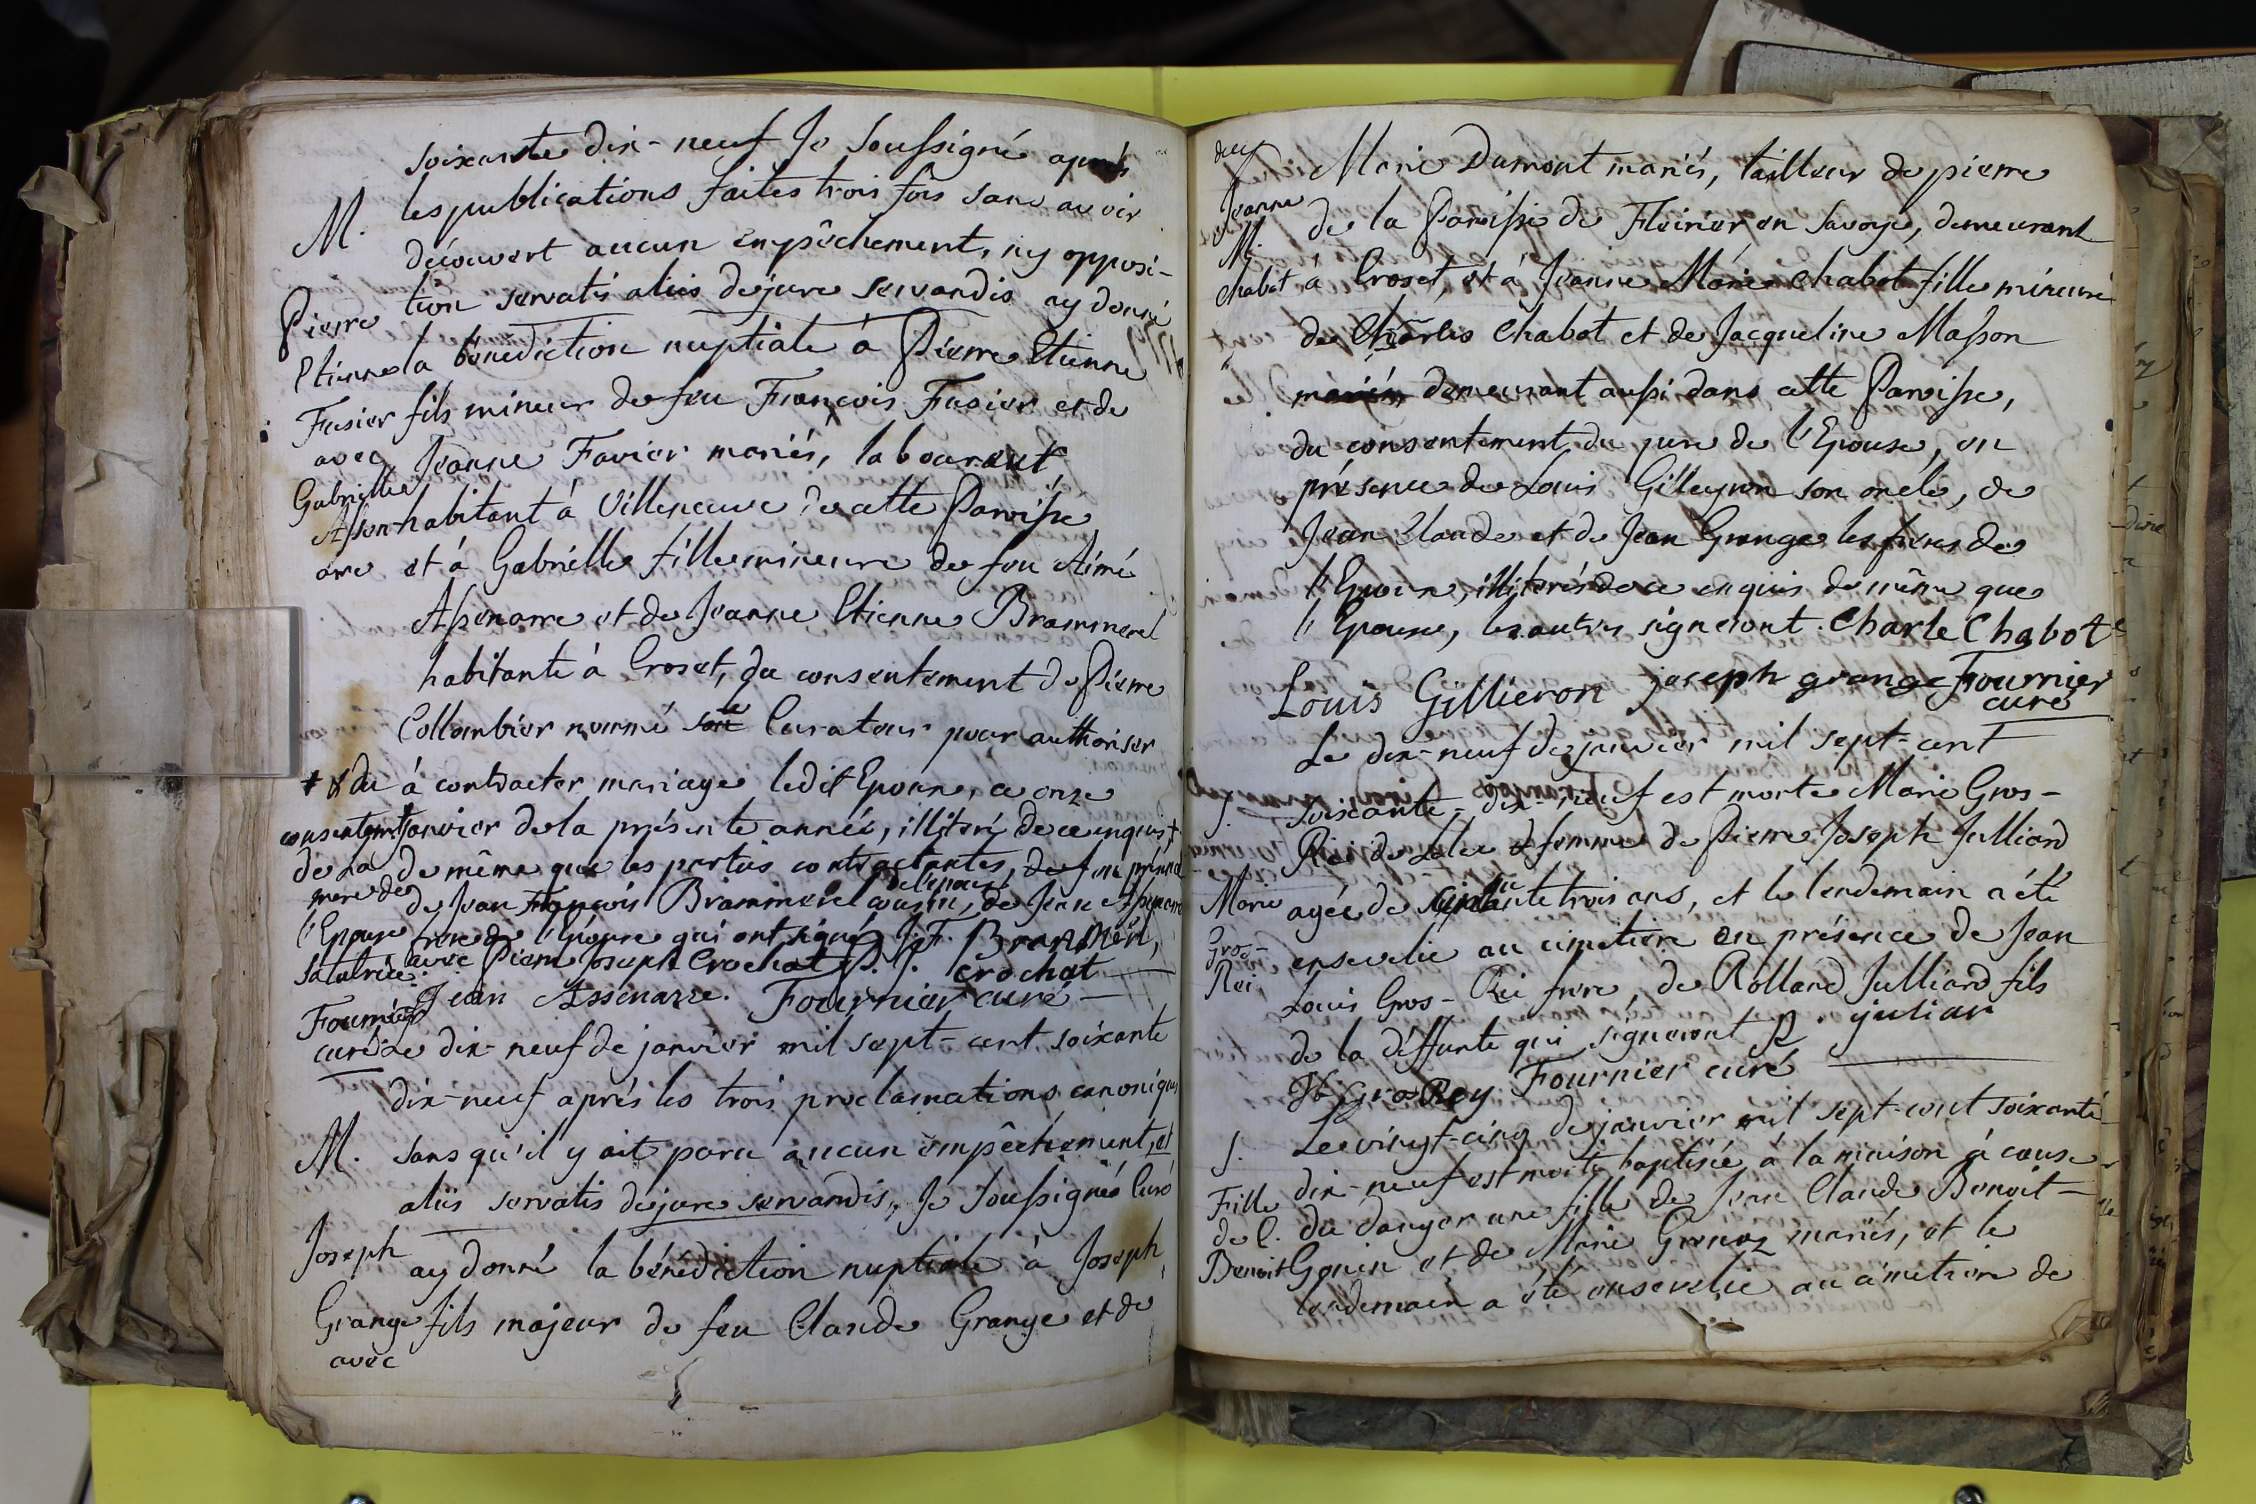 soixante dix-neuf Je soussigné après
M. les publications faites trois fois sans avoir
découvert aucun empêchement, ny opposi-
Pierre tion servatis aliis de jure servandis ay donné
Etienne la bénediction nuptiale à Pierre Etienne
Fusier fils mineur de feu François Fusier et de
avec Jeanne Favier mariés, labourant
Gabrielle
Assen- habitant à Villeneuve de cette Paroisse
arre et à Gabrielle fille mineure de feu Aimé
Assenarre et de Jeanne Etienne Brammerel
habitante à Croset, du consentement de Pierre
Collombier nommé Curateur pour authoriser
+ & du à contracter mariage ledit Epoux, ce onze
consentement janvier de la présente année, illiteré de ce enquis +
de la de même que les parties contractantes,
mere de de Jean François Brammerel cousin de l'epouse, de Jean Assenarre
l'Epouse frere de l'Epouse qui ont signé J. F. Brammerel,
sa tutrice. avec Pierre Joseph Crochat P. J. Crochat
Fournier Jean Assenarre. Fournier curé
curé Le dix-neuf de janvier mil sept-cent soixante
dix-neuf après les trois proclamations canoniques
M. sans qu'il y ait paru aucun empêchement, et
aliis servatis de jure servandis, Je soussigné Curé
Joseph ay donné la bénédiction nuptiale à Joseph
Grange fils majeur de feu Claude Grange et de
avec
Marie Dumont mariés, tailleur de pierre
Jeanne
M. de la Paroisse de Fleirier en Savoye, demeurant
Chabot à Croset, et à Jeanne Marie Chabot fille mineure
de Charles Chabot et de Jacqueline Masson
mariés, demeurant aussi dans cette Paroisse,
du consentement du pere de l'Epouse, en
présence de Louis Gilleyron son oncle, de
Jean Claude et de Jean Grange les freres de
l'Epoux, illiterés de ce enquis de même que
l'Epouse, les autres signeront. Charle Chabot
Louis Gillieron joseph grange Fournier
curé
Le dix-neuf de janvier mil sept-cent
S. soixante-dix-neuf est morte Marie Gros-
Rei de Lelex femme de Pierre Joseph Julliard
Marie agée de trois ans, et le lendemain a été
Gros- ensevelie au cimetiere en présence de Jean
Rei Louis Gros-Rei frere, de Rolland Julliard fils
de la deffunte qui signeront R. juliar
Gros Rey Fournier curé
Le vingt-cinq de janvier mil sept-cent soixante
S. dix-neuf est morte baptisée à la maison à cause
Fille du danger une fille de Jean Claude Benoit-
de C.
Benoit Gonin et de Marie Grenoz mariés, et le
lendemain a été ensevelie au cimetiere de